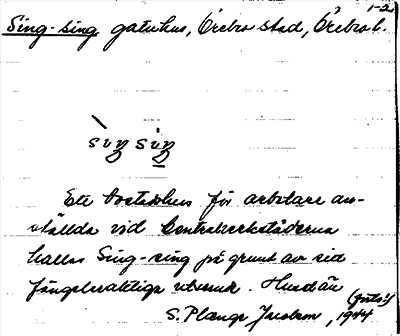 1-2
Sing-sing gatuhus, Örebro stad, Örebro l.
Ett bostadshus för arbetare an-
ställda vid Centralverkstäderna
kallas Sing-sing på grund av sitt
fängelseaktiga utseende. Huset är
S. Plange Jacobson, 1944